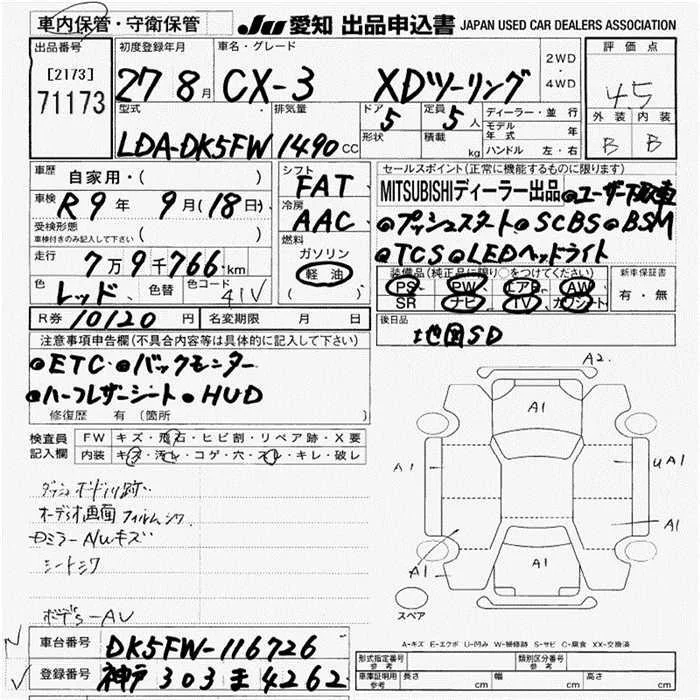 車内保管・守衛保管 JU 愛知 出品申込書 JAPAN USED CAR DEALERS ASSOCIATION
出品番号 初度登録年月 車名・グレード 2WD・4WD 評価点
[2173] 71173 27 8月 CX-3 XDツーリング 4.5
型式 排気量 ドア 5 定員 5人 ディーラー・並行 外装 内装
LDA-DK5FW 1490cc 形状 積載 kg モデル年式 年 B B
ハンドル 左・右
車歴 自家用・( ) シフト FAT セールスポイント(正常に機能するものに限ります)
車検 R9年 9月(18日) 冷房 AAC MITSUBISHIディーラー出品
受検形態 車検付きのみ記入して下さい ( ) プッシュスタート SCBS BSM
走行 7万9千766km 燃料 ガソリン 軽油 ( ) TCS LEDヘッドライト
色 レッド 色替 色コード 41V 装備品(純正品に限り○をつけてください) 新車保証書
PS PW エアB AW 有・無
SR ナビ TV カワシート
R券 10120円 名変期限 月 日 後日品
地図SD
注意事項申告欄(不具合内容等は具体的に記入して下さい)
ETC バックモニター
ハーフレザーシート HUD
修復歴 有 (箇所 )
検査員記入欄 FW キズ・飛石・ヒビ割・リペア跡・X要
内装 キズ・汚レ・コゲ・穴・スレ・キレ・破レ
A2
A1
A1 UA1
A1
A1 A1
スペア
オーディオ画面フィルムシワ
シートシワ
A-キズ E-エクボ U-凹み W-補修跡 S-サビ C-腐食 XX-交換済
車台番号 DK5FW-116726 形式指定番号 参考 類別区分番号 参考
登録番号 神戸 303 ま 4262 車庫証明用 参考 長さ cm 幅 cm 高さ cm